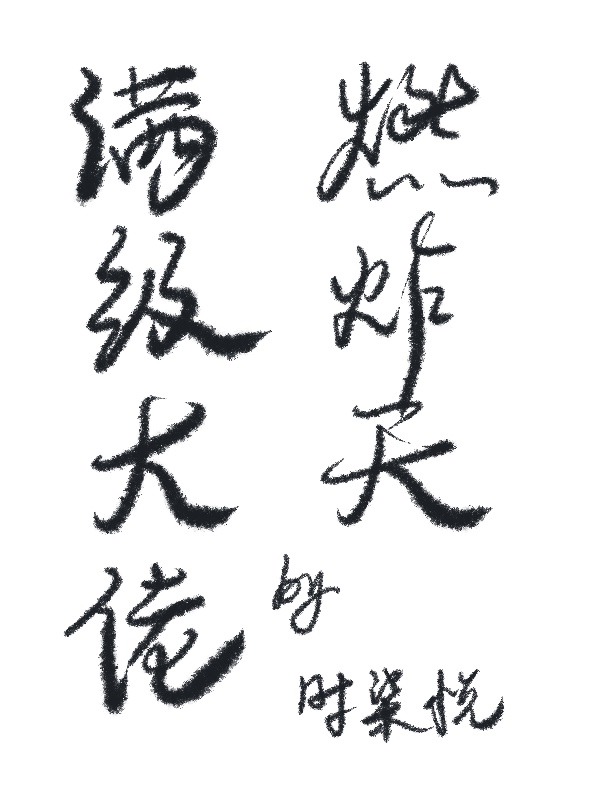 燃炸天
的
时柒悦
满级大佬